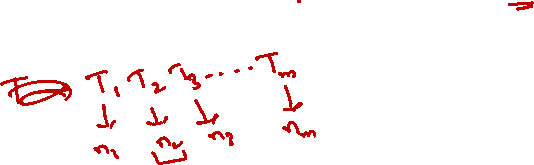 T₁ T₂ T₃ ...... Tₘ
↓ ↓ ↓ ↓
n₁ n₂ n₃ nₘ